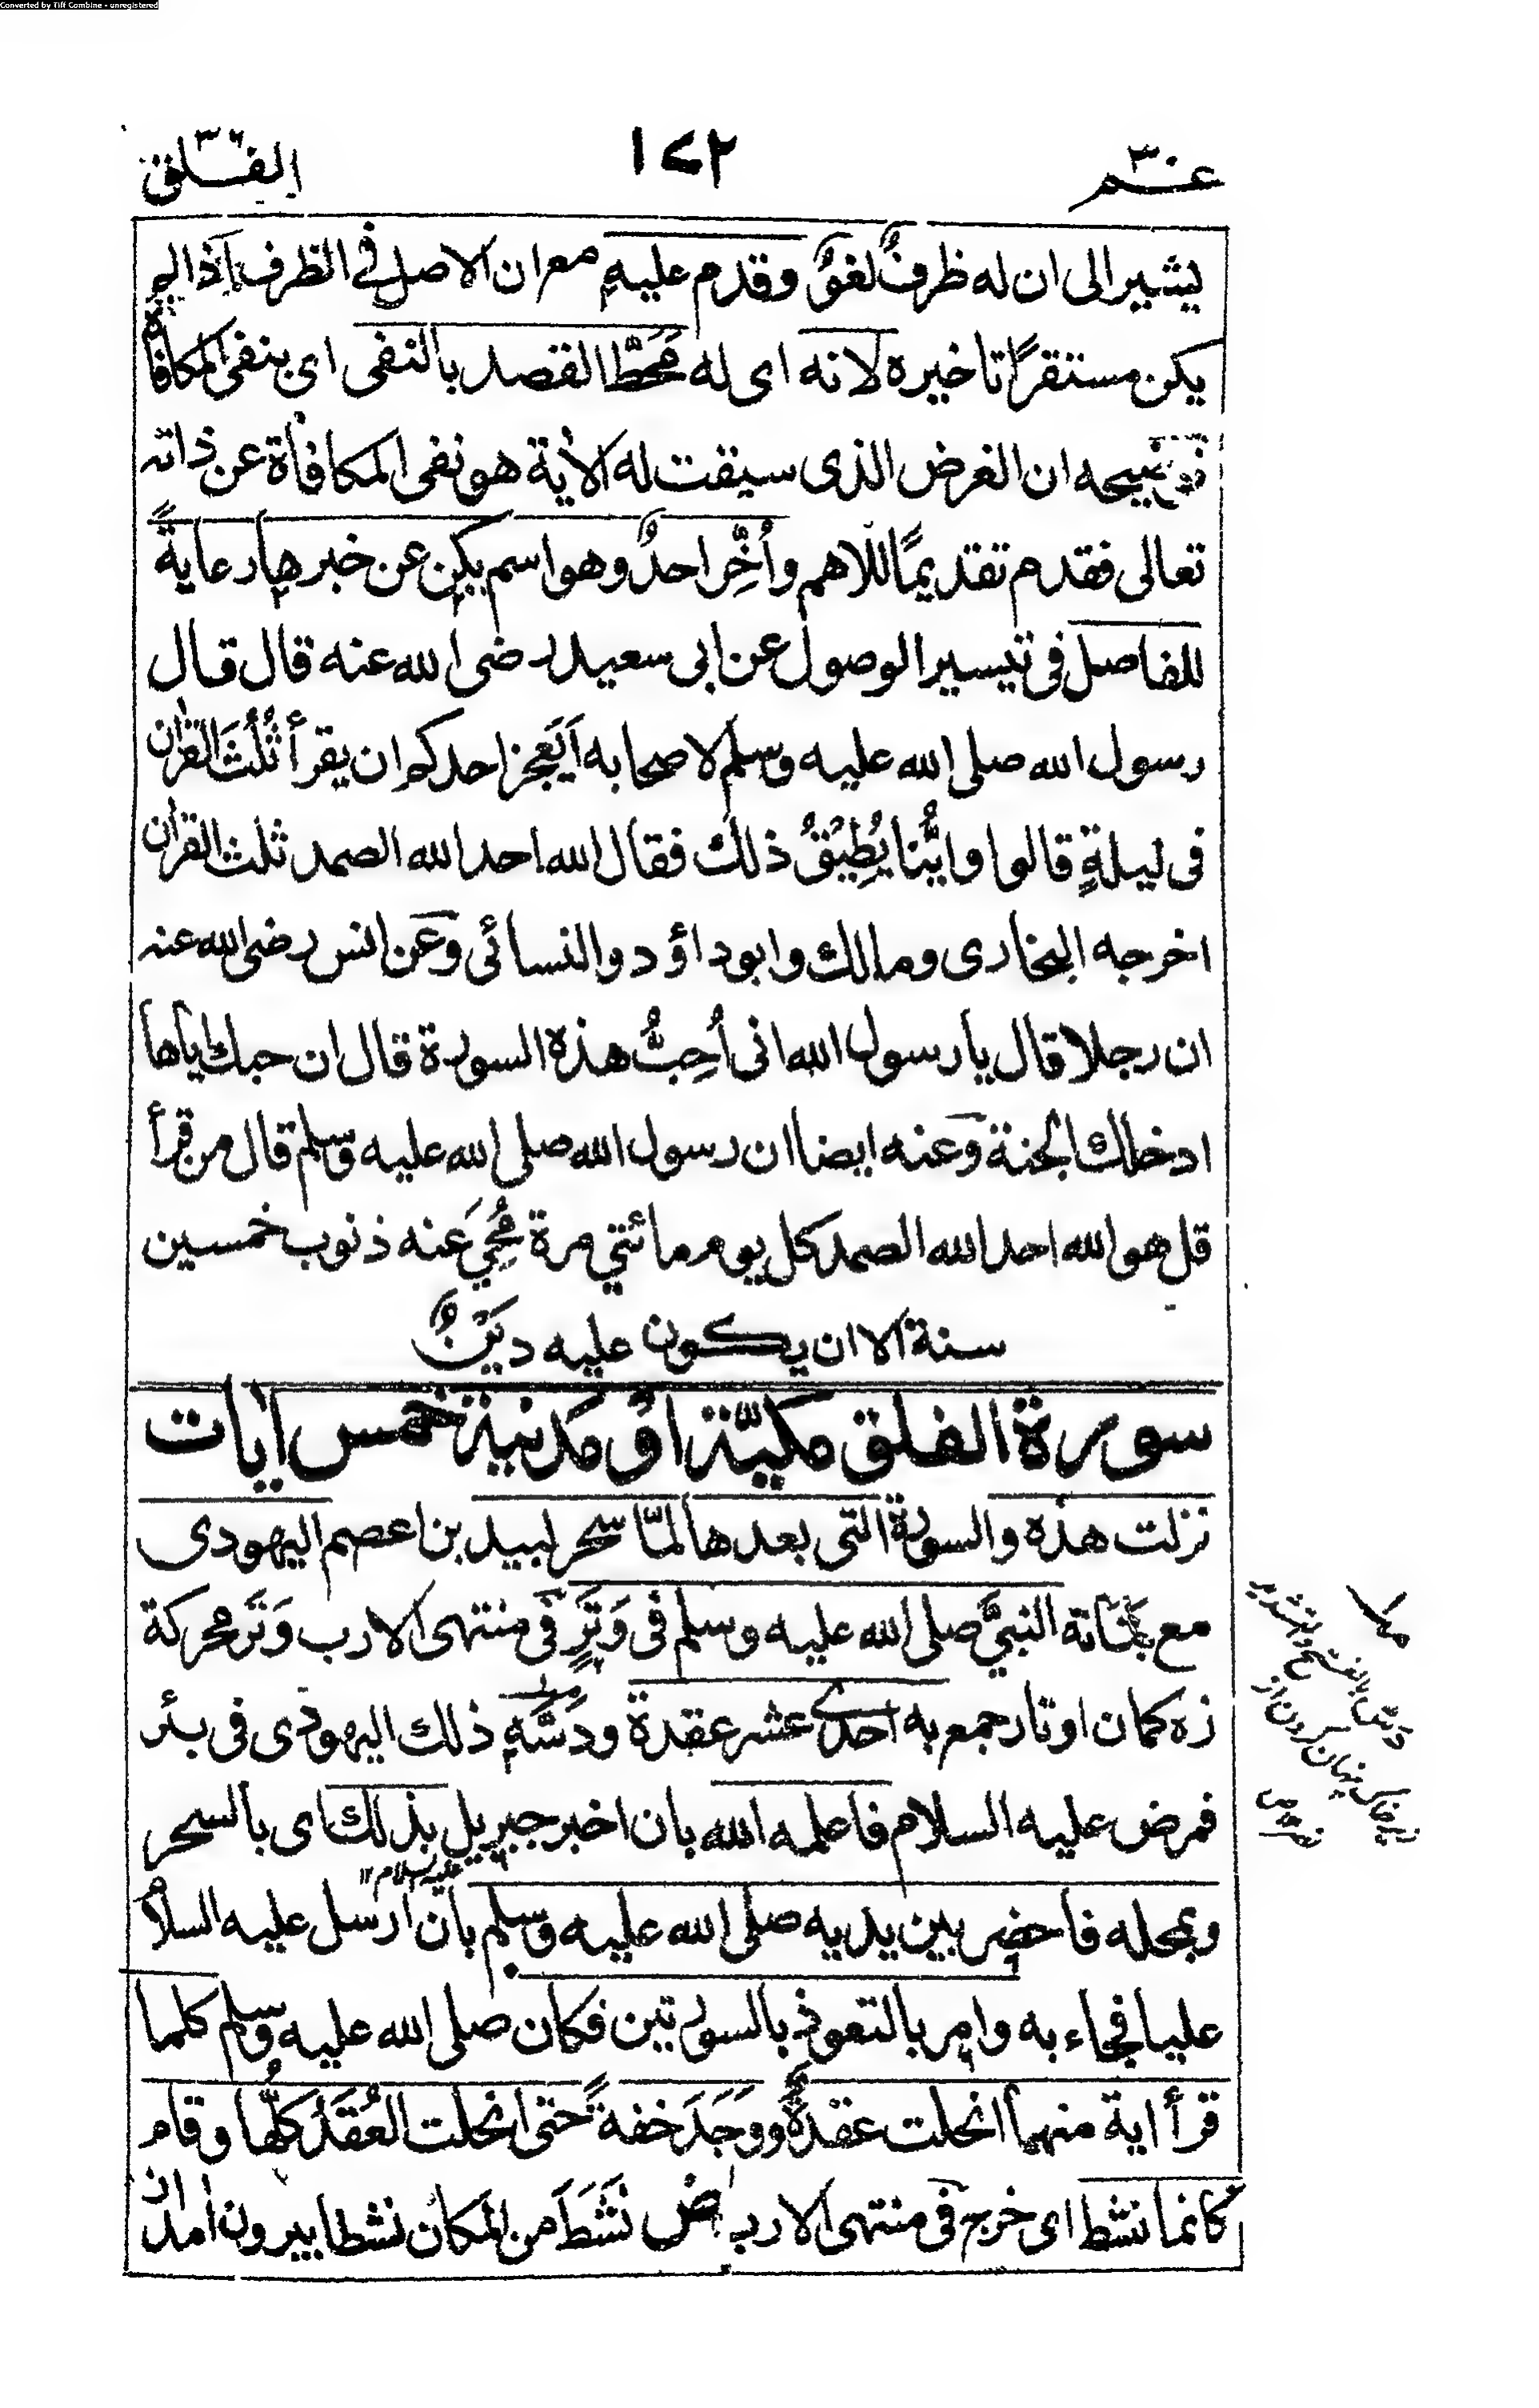 Converted by Tiff Combine - unregistered
عـــم ٣٠
١٧٢
الفــلق
يشير الى ان له ظرفٌ لغوٌ وقدم عليه مع ان الاصل فى الظرف اذا لم
يكن مستقرًا تاخيره لانه اى له مَحَطُّ القصد بالنفى اى بنفى المكافاة
توضيحه ان الغرض الذى سيقت له الأية هو نفى المكافأة عن ذاته
تعالى فقدم تقديمًا للاهم وأُخِّر احدٌ وهو اسم يكن عن خبرها رعايةً
للفاصل فى تيسير الوصول عن ابى سعيد رضى الله عنه قال قال
رسول الله صلى الله عليه وسلم لاصحابه اَيَعجز احدكم ان يقرأ ثُلُثَ القرأن
فى ليلةٍ قالوا وايُّنا يُطِيْقُ ذلك فقال الله احد الله الصمد ثلث القرأن
اخرجه البخارى ومالك وابوداؤد والنسائى وعن انس رضى الله عنه
ان رجلا قال يا رسول الله انى اُحِبُّ هذه السورة قال ان حبك اياها
ادخلك الجنة وعنه ايضا ان رسول الله صلى الله عليه وسلم قال من قرأ
قل هو الله احد الله الصمد كل يوم مائتي مرة مُحِيَ عنه ذنوب خمسين
سنة الا ان يكون عليه دَيْنٌ
سورة الفلق مكيّة او مدنية خمس أيات
نزلت هذه والسورة التى بعدها لمّا سحر لبيد بن اعصم اليهودى
مع بناته النبيَّ صلى الله عليه وسلم فى وَتَرٍ فى منتهى الارب وَتَر محركة
زه كمان اوتار جمع به احدى عشر عقدة ودَسَّه ذلك اليهودى فى بئر
فمرض عليه السلام فاعلمه الله بان اخبر جبريل بذلك اى بالسحر
عليه السلام ١٢
وبمحله فاحضر بين يديه صلى الله عليه وسلم بان ارسل عليه السلام
عليا فجاء به وامر بالتعوذ بالسورتين فكان صلى الله عليه وسلم كلما
قرأ اية منهما انحلت عقدةٌ ووَجَدَ خفةً حتى انحلت العُقَدُ كلُّها وقام
كانما نشط اى خرج فى منتهى الارب نَشَطَ من المكان نشطا بيرون امدن ازان